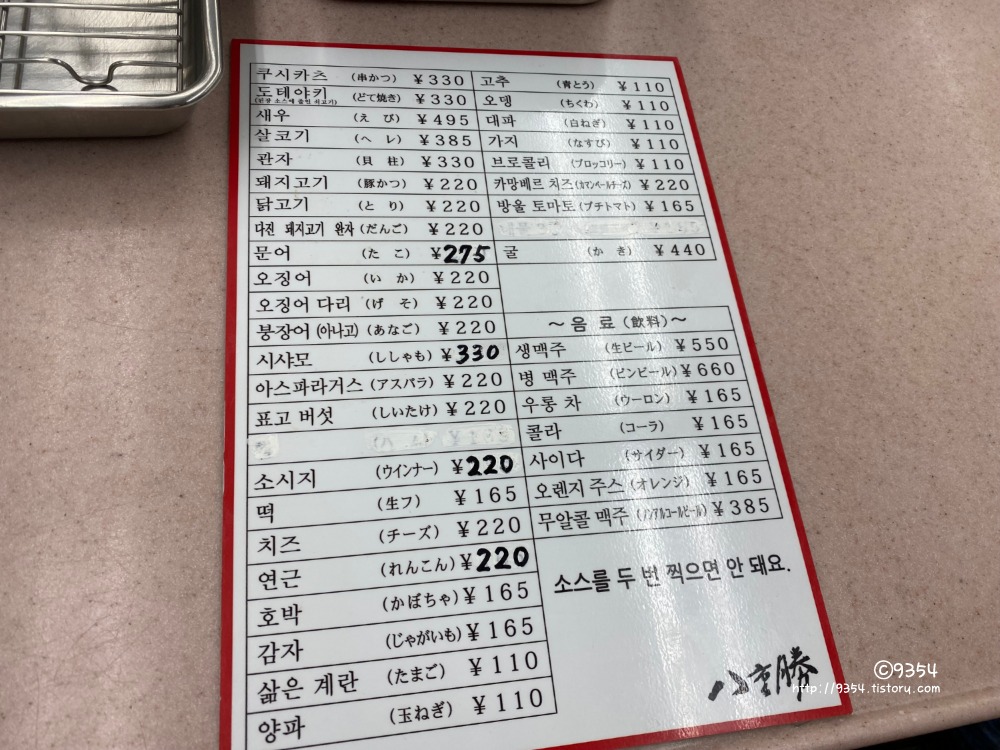 쿠시카츠 (串かつ) ¥330
도테야키 (どて焼き) ¥330
(된장 소스에 졸인 쇠고기)
새우 (えび) ¥495
살코기 (ヘレ) ¥385
관자 (貝柱) ¥330
돼지고기 (豚かつ) ¥220
닭고기 (とり) ¥220
다진 돼지고기 완자 (だんご) ¥220
문어 (たこ) ¥275
오징어 (いか) ¥220
오징어 다리 (げそ) ¥220
붕장어 (아나고) (あなご) ¥220
시샤모 (ししゃも) ¥330
아스파라거스 (アスパラ) ¥220
표고 버섯 (しいたけ) ¥220
소시지 (ウインナー) ¥220
떡 (生フ) ¥165
치즈 (チーズ) ¥220
연근 (れんこん) ¥220
호박 (かぼちゃ) ¥165
감자 (じゃがいも) ¥165
삶은 계란 (たまご) ¥110
양파 (玉ねぎ) ¥110
고추 (青とう) ¥110
오뎅 (ちくわ) ¥110
대파 (白ねぎ) ¥110
가지 (なすび) ¥110
브로콜리 (ブロッコリー) ¥110
카망베르 치즈 (カマンベールチーズ) ¥220
방울 토마토 (プチトマト) ¥165
굴 (かき) ¥440
～음 료 (飲料)～
생맥주 (生ビール) ¥550
병 맥주 (ビンビール) ¥660
우롱 차 (ウーロン) ¥165
콜라 (コーラ) ¥165
사이다 (サイダー) ¥165
오렌지 주스 (オレンジ) ¥165
무알콜 맥주 (ノンアルコールビール) ¥385
소스를 두 번 찍으면 안 돼요.
八重勝
©9354
http://9354.tistory.com